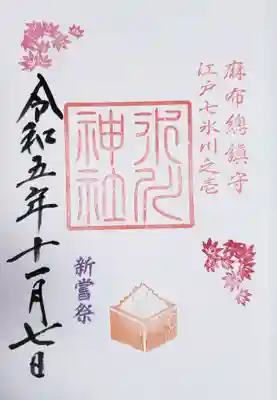 麻布總鎮守
江戸七氷川之壱
氷川
神社
新嘗祭
令和五年十一月七日